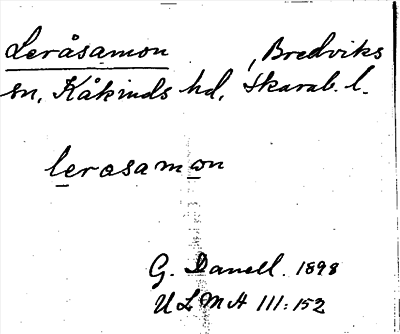 Leråsamon, Bredviks
sn, Kåkinds hd, Skarab. l.
lerasamon
G. Danell. 1898
ULMA 111:152